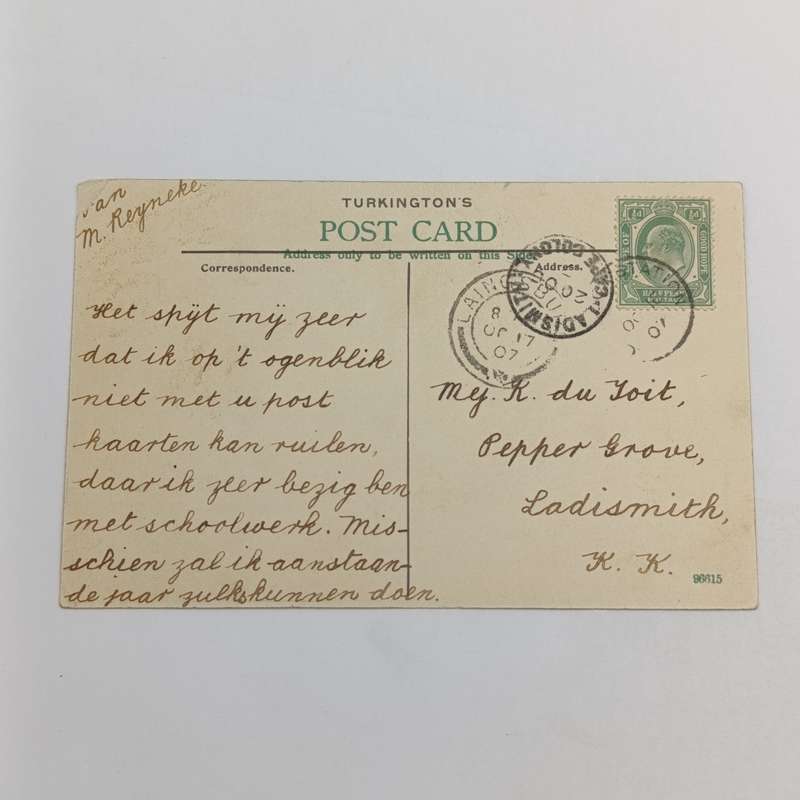 van
M. Reyneke.
TURKINGTON'S
POST CARD
Address only to be written on this Side.
Correspondence.
Address.
Het spijt mij zeer
dat ik op 't ogenblik
niet met u post
kaarten kan ruilen,
daar ik zeer bezig ben
met schoolwerk. Mis-
schien zal ik aanstaan-
de jaar zulks kunnen doen.
½d
½d
GOOD HOPE
HALF PENNY
LAING
8
OC 17
07
LADISMITH
CAPE COLONY
STATION
Mej. K. du Toit,
Pepper Grove,
Ladismith,
K. K.
96615